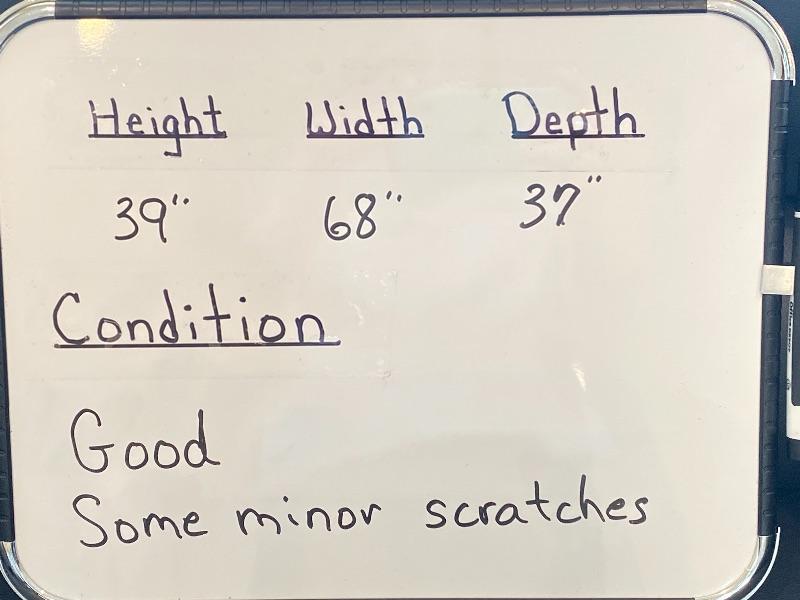 Height Width Depth
39" 68" 37"
Condition
Good
Some minor scratches